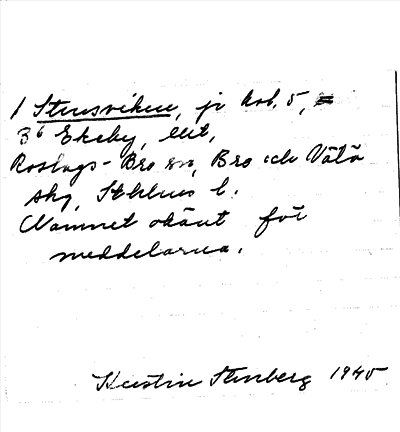 1 Stensviken, jr kol. 5,
3⁶ Ekeby, lill,
Roslags-Bro sn, Bro och Vätö
skg, Sthlms l.
Namnet okänt för
meddelarna.
Kerstin Stenberg 1945